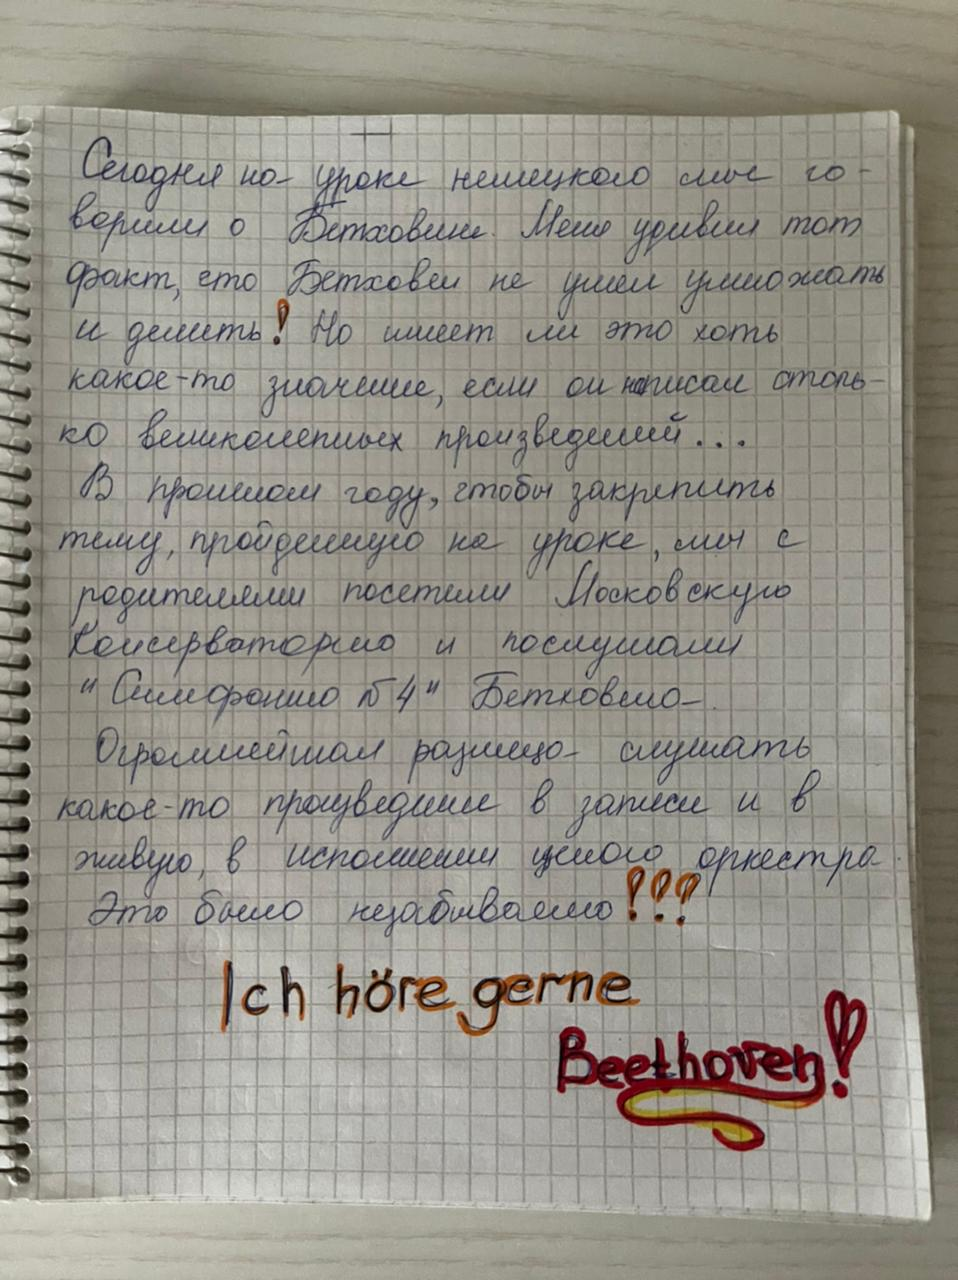 Сегодня на уроке немецкого мы го-
ворили о Бетховене. Меня удивил тот
факт, что Бетховен не умел умножать
и делить! Но имеет ли это хоть
какое-то значение, если он написал столь-
ко великолепных произведений...
В прошлом году, чтобы закрепить
тему, пройденную на уроке, мы с
родителями посетили Московскую
Консерваторию и послушали
"Симфонию №4" Бетховена.
Огромнейшая разница слушать
какое-то произведение в записи и в
живую, в исполнении целого оркестра.
Это было незабываемо!!!
Ich höre gerne
Beethoven!